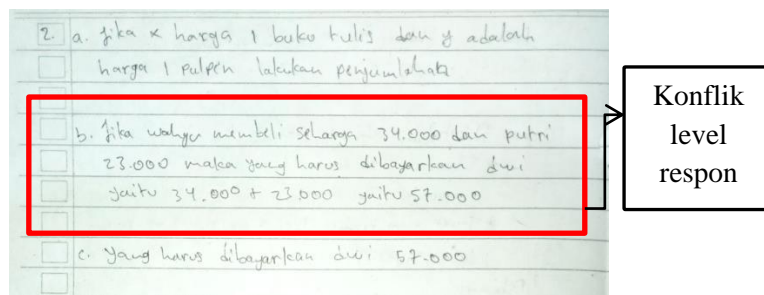 2. a. Jika x harga 1 buku tulis dan y adalah
harga 1 pulpen lakukan penjumlahan
b. Jika wahyu membeli seharga 34.000 dan putri
23.000 maka yang harus dibayarkan dwi
yaitu 34.000 + 23.000 yaitu 57.000
c. yang harus dibayarkan dwi 57.000
Konflik
level
respon